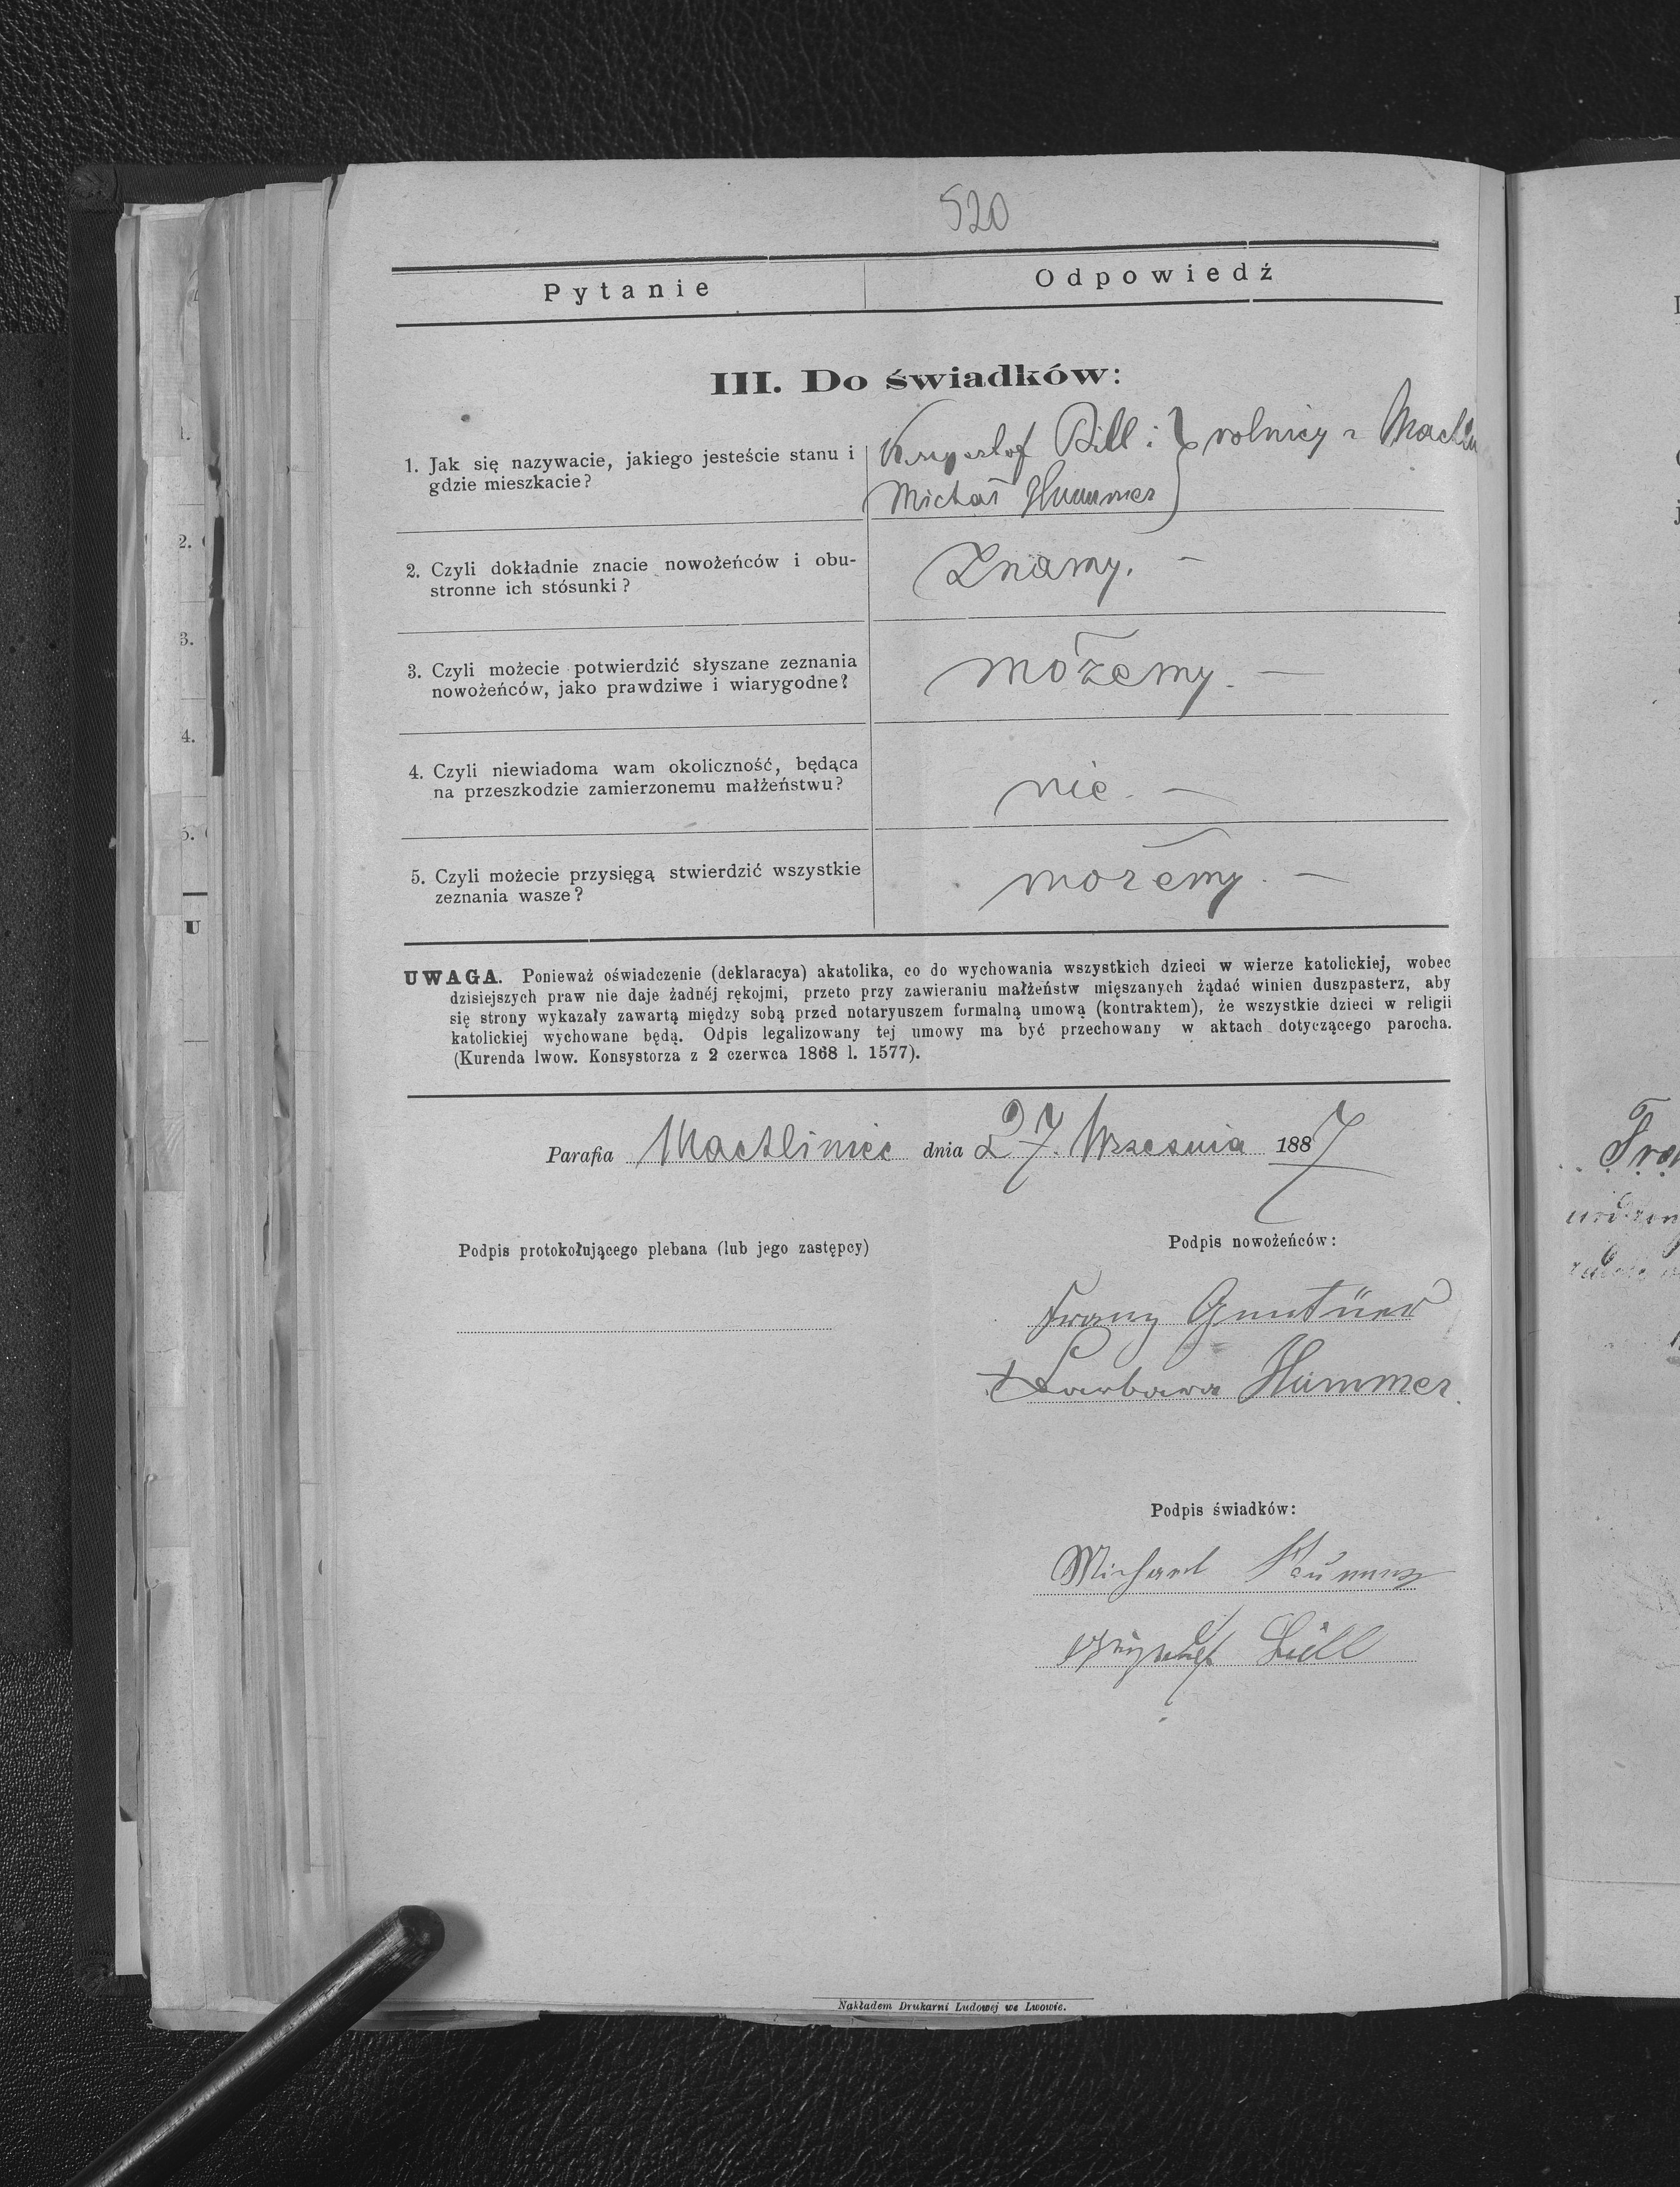 520
Pytanie Odpowiedź
III. Do świadków:
1. Jak się nazywacie, jakiego jesteście stanu i
gdzie mieszkacie?
Krzysztof Bill i } rolnicy z Machlin
Michał Hummer
2. Czyli dokładnie znacie nowożeńców i obu-
stronne ich stósunki?
Znamy. —
3. Czyli możecie potwierdzić słyszane zeznania
nowożeńców, jako prawdziwe i wiarygodne?
możemy. —
4. Czyli niewiadoma wam okoliczność, będąca
na przeszkodzie zamierzonemu małżeństwu?
nie. —
5. Czyli możecie przysięgą stwierdzić wszystkie
zeznania wasze?
możemy. —
UWAGA. Ponieważ oświadczenie (deklaracya) akatolika, co do wychowania wszystkich dzieci w wierze katolickiej, wobec
dzisiejszych praw nie daje żadnéj rękojmi, przeto przy zawieraniu małżeństw mięszanych żądać winien duszpasterz, aby
się strony wykazały zawartą między sobą przed notaryuszem formalną umową (kontraktem), że wszystkie dzieci w religii
katolickiej wychowane będą. Odpis legalizowany tej umowy ma być przechowany w aktach dotyczącego parocha.
(Kurenda lwow. Konsystorza z 2 czerwca 1868 l. 1577).
Parafia Machliniec dnia 27. Września 1887
Podpis protokołującego plebana (lub jego zastępcy)
Podpis nowożeńców:
Franz
Barbara Hummer
Podpis świadków:
Michael
1.
2.
3.
4.
5.
U